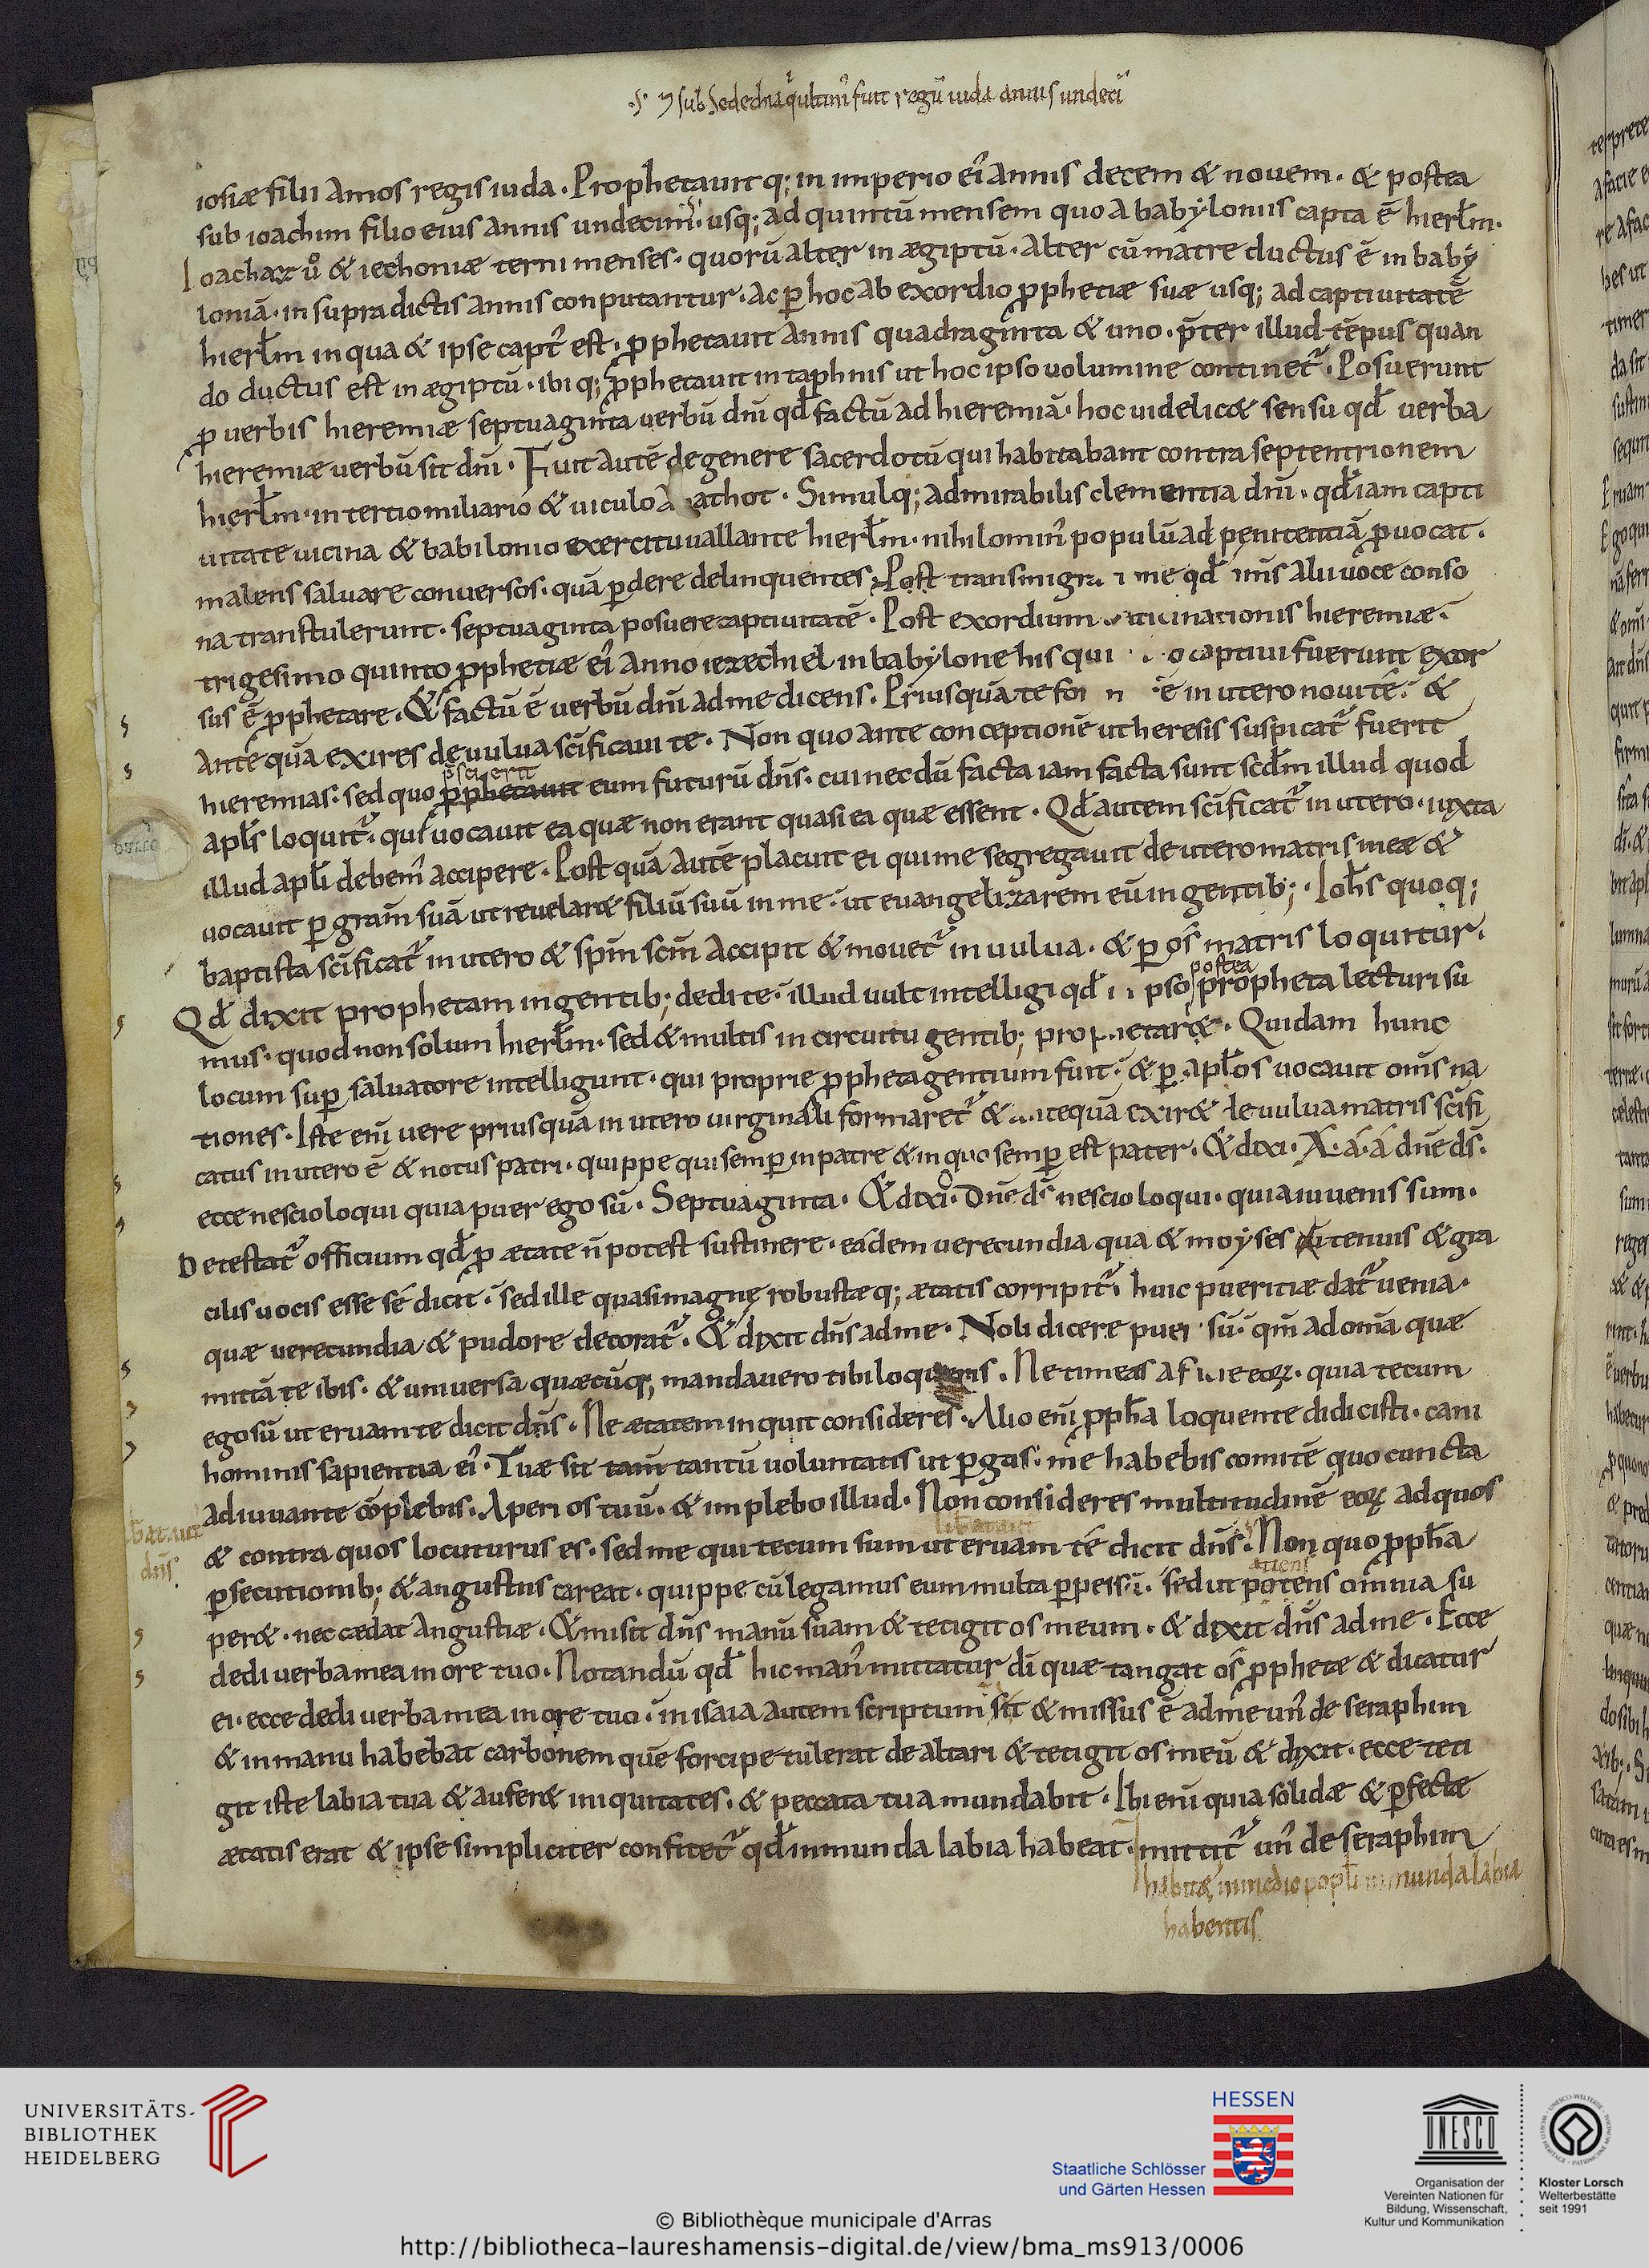 ⁊ sub Sedechia q̇ ultim᾽ fuit regū iuda annis undeci
iosiæ filii amos regis iuda · Prophetauit q; in imperio ei᾽ annis decem & nouem · & postea
sub ioachim filio eius annis undecim · usq; ad quintū mensem quo a babyloniis capta ē hierłm ·
Ioachaz uº & iechoniæ terni menses · quorū alter in ægiptū · alter cū matre ductus ē in baby
loniā · in supradictis annis conputantur · ac ꝑ hoc ab exordio ꝓphetiæ suæ usq; ad captiuitatē
hierłm in qua & ipse capt᾽ est · ꝓphetauit annis quadraginta & uno · p̄ter illud tēpus quan
do ductus est in ægiptū · ibi q; ꝓphetauit in taphnis ut hoc ipso uolumine continet᾽ · Posuerunt
ꝓ uerbis hieremiæ septuaginta uerbū dn̄i qđ factū ad hieremiā · hoc uidelic& sensu qđ uerba
hieremiæ uerbū sit dn̄i · Fuit autē de genere sacerdotū qui habitabant contra septentrionem
hierłm · in tertio miliario & uiculo a athot · Simulq; admirabilis clementia dn̄i · qđ iam capti
uitate uicina & babilonio exercitu uallante hierłm · nihilomin᾽ populū ad penitentiā ꝓuocat ·
malens saluare conuersos · quā ꝑdere delinquentes · Post transmigra me qđ om̄s alii uoce conso
na transtulerunt · septuaginta posuere captiuitatē · Post exordium uaticinationis hieremiæ ·
trigesimo quinto ꝓphetiæ ei᾽ anno iezechiel in babylone his qui o captiui fuerunt exor
sus ē ꝓphetare · & factū ē uerbū dn̄i ad me dicens · Priusquā te for n ē in utero nouit ē · &
antequā exires de uulua sc̄ificaui te · Non quo ante conceptionē ut heresis suspicat᾽ fuerit
p̄scierit
hieremias · sed quo ꝓphetauit eum futurū dn̄s · cui necdū facta iam facta sunt scđm illud quod
apłs loquit᾽ · qui uocauit ea quæ non erant quasi ea quæ essent · Qđ autem sc̄ificat᾽ in utero · iuxta
illud apłi debem᾽ accipere · Post quā autē placuit ei qui me segregauit de utero matris meæ &
uocauit ꝑ gram̄ suā ut reuelar& filiū suū in me · ut euangelizarem eū in gentib; · Ioħs quoq;
baptista sc̄ificat᾽ in utero & sp̄m sc̄m accipit & mouet᾽ in uulua · & ꝑ os matris loquitur ·
postea
Qđ dixit prophetam in gentib; dedi te · illud uult intelligi qđ i pso propheta lecturi su
mus · quod non solum hierłm · sed & multis in circuitu gentib; prop etar& · Quidam hunc
locum suꝑ saluatore intelligunt · qui proprie ꝓpheta gentium fuit · & ꝑ apłos uocauit om̄s na
tiones · Iste eni᾽ uere priusquā in utero uirginali formaret᾽ & antequā exir& de uulua matris sc̄ifi
catus in utero ē & notus patri · quippe qui semꝑ in patre & in quo semꝑ est pater · & dixi · A · á · á dn̄e ds̄ ·
ecce nescio loqui quia puer ego sū · Septuaginta · & dixi · Dn̄e ds̄ nescio loqui · quia iuuenis sum ·
Detestat᾽ officium qđ ꝓ ætate n̄ potest sustinere · eadem uerecundia qua & moyses tenuis & gra
cilis uocis esse se dicit · sed ille quasi magnę robustæ q; ætatis corripit᾽ · huic pueritiæ dat᾽ uenia ·
quæ uerecundia & pudore decorat᾽ · & dixit dn̄s ad me · Noli dicere puer sū · qm̄ ad om̄a quæ
mittā te ibis · & uniuersa quæcūq; mandauero tibi loqueris · Ne timeas a facie eoꝝ · quia tecum
ego sū ut eruam te dicit dn̄s · Ne ætatem inquit consideres · Alio eni᾽ ꝓpħa loquente didicisti · cani
hominis sapientia ei᾽ · Tuæ sit tam̄ tantū uoluntatis ut ꝑgas · me habebis comitē quo cuncta
adiuuante cōplebis · Aperi os tuū · & implebo illud · Non consideres multitudinē eoꝝ ad quos
liberauit
& contra quos locuturus es · sed me qui tecum sum ut eruam te dicit dn̄s · Non quo ꝓpħa
dn̄s
ꝑsecutionib; & angustiis careat · quippe cū legamus eum multa ꝑpessū · sed ut potens omnia su
per& · nec cædat angustiæ · & misit dn̄s manū suam & tetigit os meum · & dixit dn̄s ad me · Ecce
dedi uerba mea in ore tuo · Notandū qđ hic man᾽ mittatur di᾽ quæ tangat os ꝓphetæ & dicatur
ei · ecce dedi uerba mea in ore tuo · in isaia autem scriptum sit & missus ē ad me un᾽ de seraphim
& in manu habebat carbonem quē forcipe tulerat de altari & tetigit os meū & dixit · ecce teti
git iste labia tua & aufer& iniquitates · & peccata tua mundabit · Ibi eni᾽ quia solidæ & ꝑfectæ
ætatis erat & ipse simpliciter confitet᾽ qđ inmunda labia habeat · mittit᾽ un᾽ de seraphim
habit& in medio popłi inmunda labia
habentis
UNIVERSITÄTS-
BIBLIOTHEK
HEIDELBERG
HESSEN
Staatliche Schlösser
und Gärten Hessen
UNESCO
Organisation der
Vereinten Nationen für
Bildung, Wissenschaft,
Kultur und Kommunikation
Kloster Lorsch
Welterbestätte
seit 1991
© Bibliothèque municipale d'Arras
http://bibliotheca-laureshamensis-digital.de/view/bma_ms913/0006